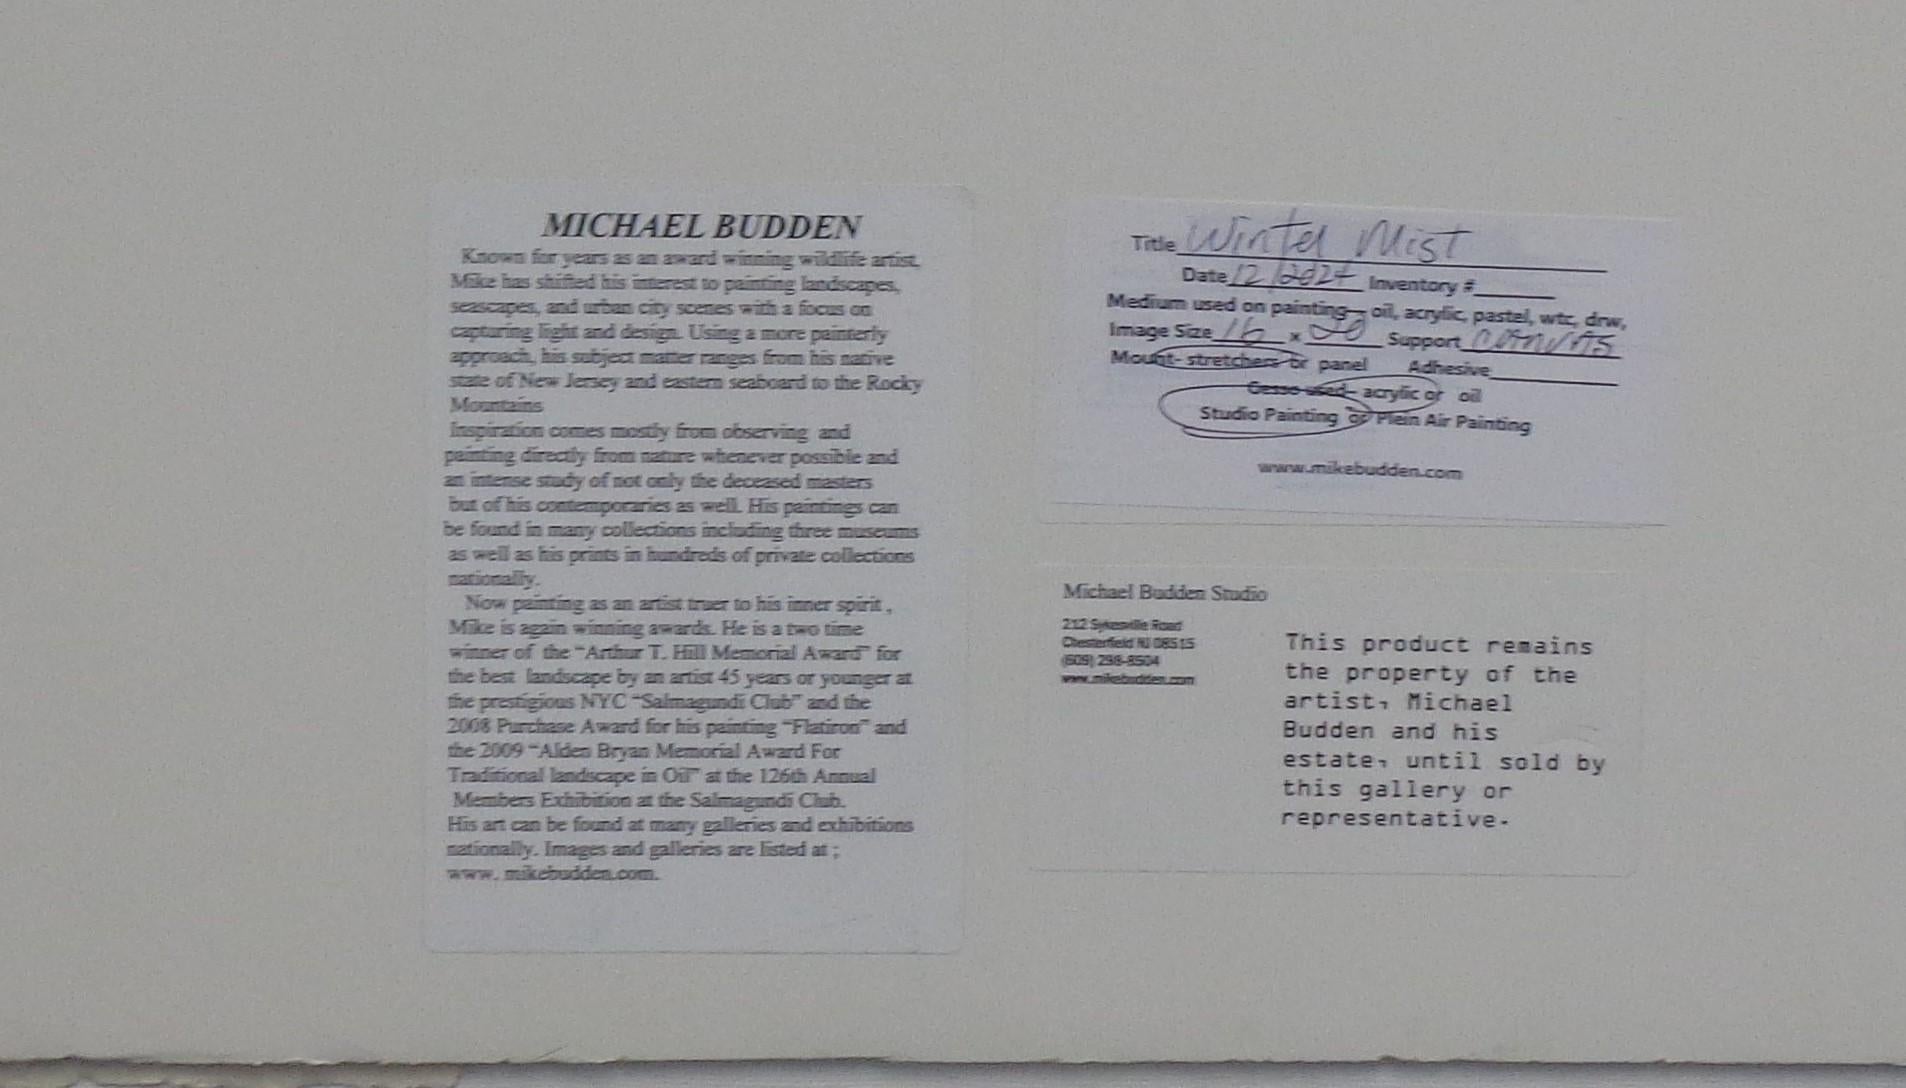 MICHAEL BUDDEN
Known for years as an award winning wildlife artist,
Mike has shifted his interest to painting landscapes,
seascapes, and urban city scenes with a focus on
capturing light and design. Using a more painterly
approach, his subject matter ranges from his native
state of New Jersey and eastern seaboard to the Rocky
Mountains
Inspiration comes mostly from observing and
painting directly from nature whenever possible and
an intense study of not only the deceased masters
but of his contemporaries as well. His paintings can
be found in many collections including three museums
as well as his prints in hundreds of private collections
nationally.
Now painting as an artist truer to his inner spirit ,
Mike is again winning awards. He is a two time
winner of the "Arthur T. Hill Memorial Award" for
the best landscape by an artist 45 years or younger at
the prestigious NYC "Salmagundi Club" and the
2008 Purchase Award for his painting "Flatiron" and
the 2009 "Alden Bryan Memorial Award For
Traditional landscape in Oil" at the 126th Annual
Members Exhibition at the Salmagundi Club.
His art can be found at many galleries and exhibitions
nationally. Images and galleries are listed at ;
www. mikebudden.com.
Title Winter Mist
Date 12/2024 Inventory #
Medium used on painting- oil, acrylic, pastel, wtc, drw,
Image Size 16 x 20 Support Canvas
Mount- stretchers or panel Adhesive
Gesso used- acrylic or oil
Studio Painting or Plein Air Painting
www.mikebudden.com
Michael Budden Studio
212 Sykesville Road
Chesterfield NJ 08515
(609) 298-8504
www.mikebudden.com
This product remains
the property of the
artist, Michael
Budden and his
estate, until sold by
this gallery or
representative.